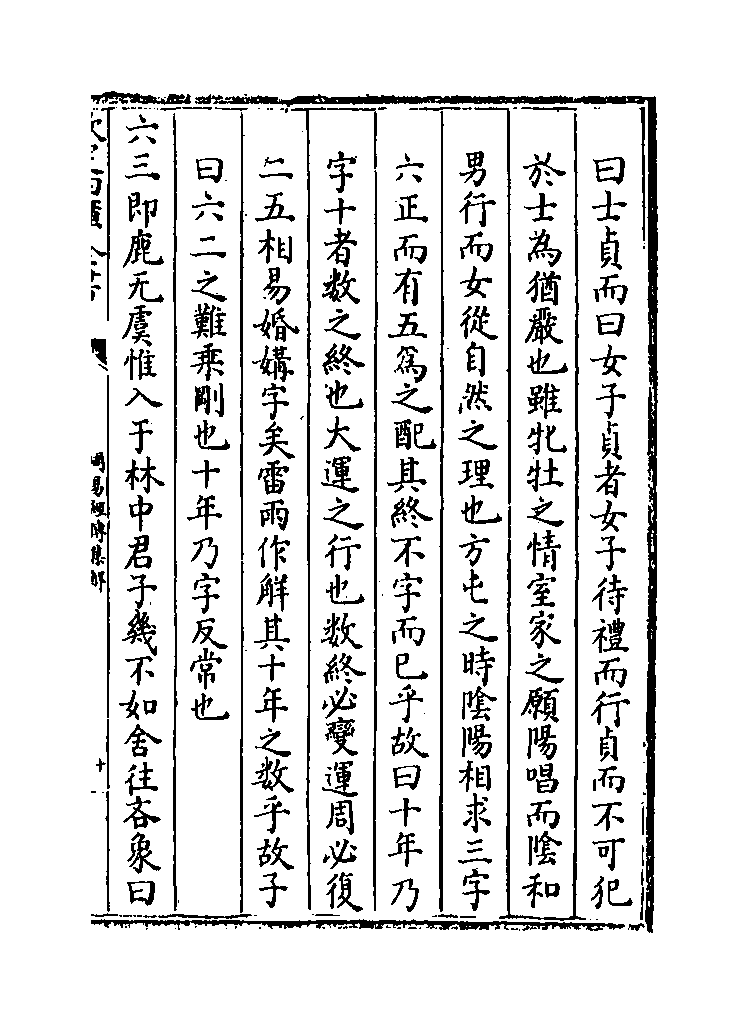 曰士貞而曰女子貞者女子待禮而行貞而不可犯
於士為猶嚴也雖牝牡之情室家之願陽唱而陰和
男行而女從自然之理也方屯之時陰陽相求三字
六正而有五為之配其終不字而已乎故曰十年乃
字十者数之終也大運之行也数終必變運周必復
二五相易婚媾字矣雷雨作解其十年之数乎故子
曰六二之難乘剛也十年乃字反常也
六三即鹿无虞惟入于林中君子幾不如舍往吝象曰
周易經傳集解
十一